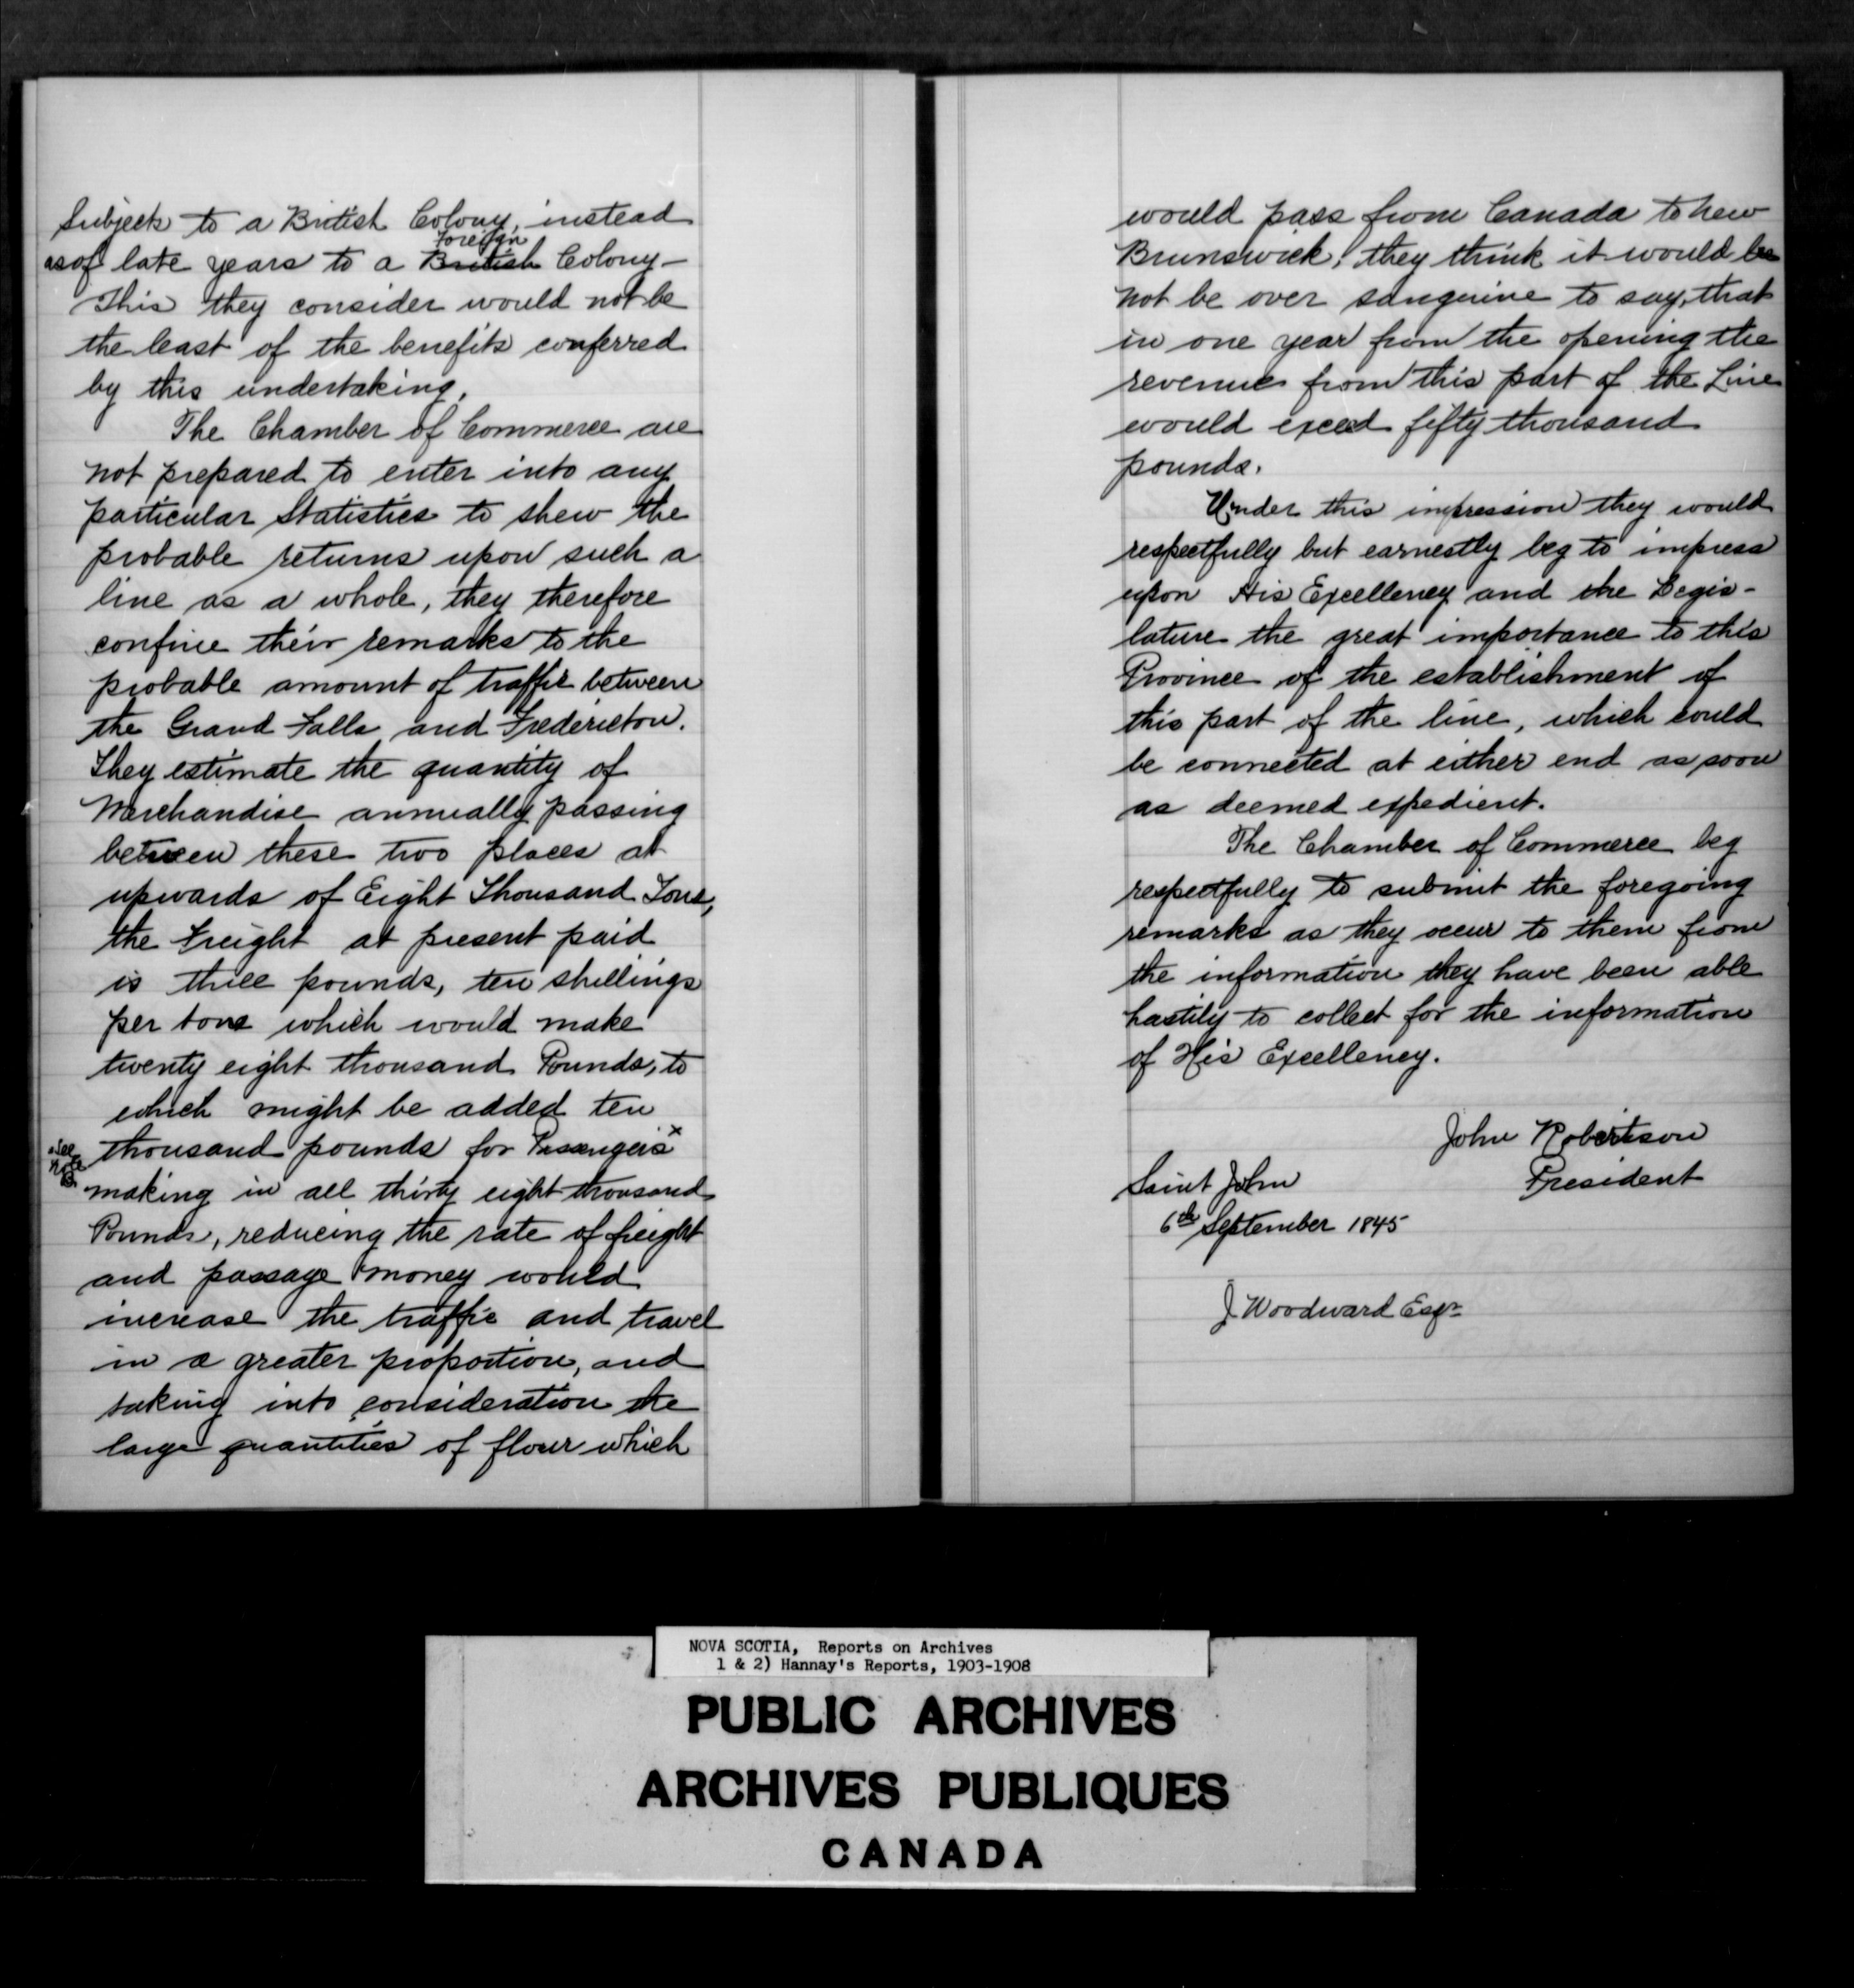 Subjects to a British Colony, instead
as of late years to a British Foreign Colony —
This they consider would not be
the least of the benefits conferred
by this undertaking.
The Chamber of Commerce are
not prepared to enter into any
particular Statistics to shew the
probable returns upon such a
line as a whole, they therefore
confine their remarks to the
probable amount of traffic between
the Grand Falls and Fredericton.
They estimate the quantity of
Merchandise annually passing
between these two places at
upwards of Eight Thousand Tons,
the freight at present paid
is three pounds, ten shillings
per tone which would make
twenty eight thousand Pounds, to
which might be added ten
x See note B.
thousand pounds for Passengers x
making in all thirty eight thousand
Pounds, reducing the rate of freight
and passage money would
increase the traffic and travel
in a greater proportion, and
taking into consideration the
large quantities of flour which
would pass from Canada to New
Brunswick, they think it would be
not be over sanguine to say, that
in one year from the opening the
revenue from this part of the Line
would exceed fifty thousand
pounds.
Under this impression they would
respectfully but earnestly beg to impress
upon His Excellency and the Legis-
lature the great importance to this
Province of the establishment of
this part of the line, which could
be connected at either end as soon
as deemed expedient.
The Chamber of Commerce beg
respectfully to submit the foregoing
remarks as they occur to them from
the information they have been able
hastily to collect for the information
of His Excellency.
John Robertson
President
Saint John
6th September 1845
J. Woodward Esqr
NOVA SCOTIA, Reports on Archives
1 & 2) Hannay's Reports, 1903-1908
PUBLIC ARCHIVES
ARCHIVES PUBLIQUES
CANADA